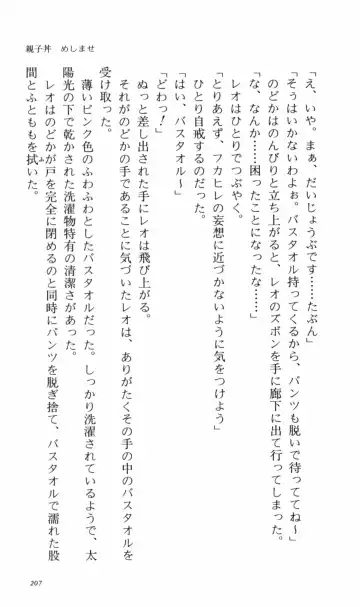 親子丼 めしませ
「え、いや。まぁ、だいじょうぶです……たぶん」
「そうはいかないわよぉ。バスタオル持ってくるから、パンツも脱いで待っててね〜」
のどかはのんびりと立ち上がると、レオのズボンを手に廊下に出て行ってしまった。
「な、なんか……困ったことになったな……」
レオはひとりでつぶやく。
「とりあえず、フカヒレの妄想に近づかないように気をつけよう」
ひとり自戒するのだった。
「はい、バスタオル〜」
「どわっ！」
ぬっと差し出された手にレオは飛び上がる。
それがのどかの手であることに気づいたレオは、ありがたくその手の中のバスタオルを
受け取った。
薄いピンク色のふわふわとしたバスタオルだった。しっかり洗濯されているようで、太
陽光の下で乾かされた洗濯物特有の清潔さがあった。
レオはのどかが戸を完全に閉めるのと同時にパンツを脱ぎ捨て、バスタオルで濡れた股
間とふとももを拭いた。
207